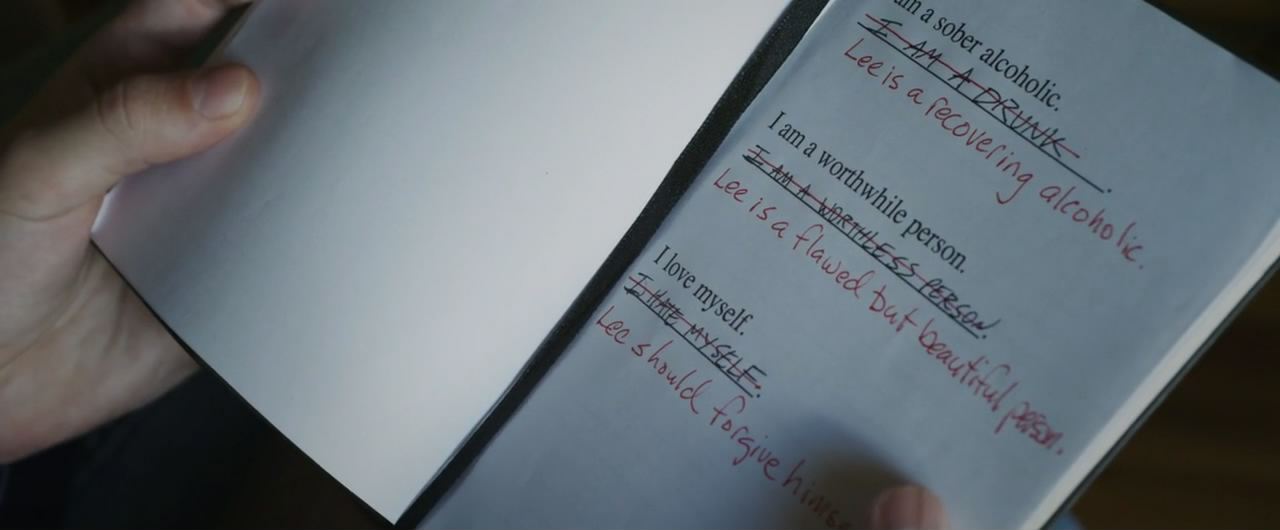 am a sober alcoholic.
I AM A DRUNK.
Lee is a recovering alcoholic.
I am a worthwhile person.
I AM A WORTHLESS PERSON.
Lee is a flawed but beautiful person.
I love myself.
I HATE MYSELF.
Lee should forgive himse